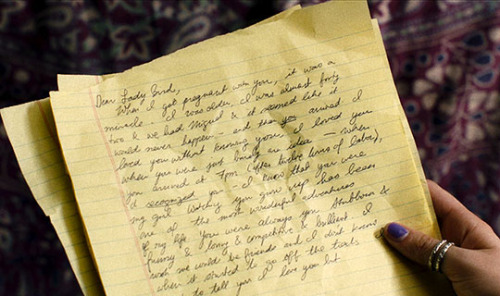 Dear Lady Bird,
When I got pregnant with you, it was a
miracle. I was older, I was almost forty
two & we had Miguel & it seemed like it
would never happen — and then you arrived. I
loved you without knowing you, I loved you
when you were just only an idea — When
you arrived at 7pm (after twelve hours of labor),
I recognized you. I knew that you were
my girl. Watching you grow up has been
one of the most wonderful adventures
of my life. You were always you. Stubborn &
funny & loving & competitive & brilliant. I
wish we would be friends and I don't know
when it started to go off the tracks
to tell you I love you but